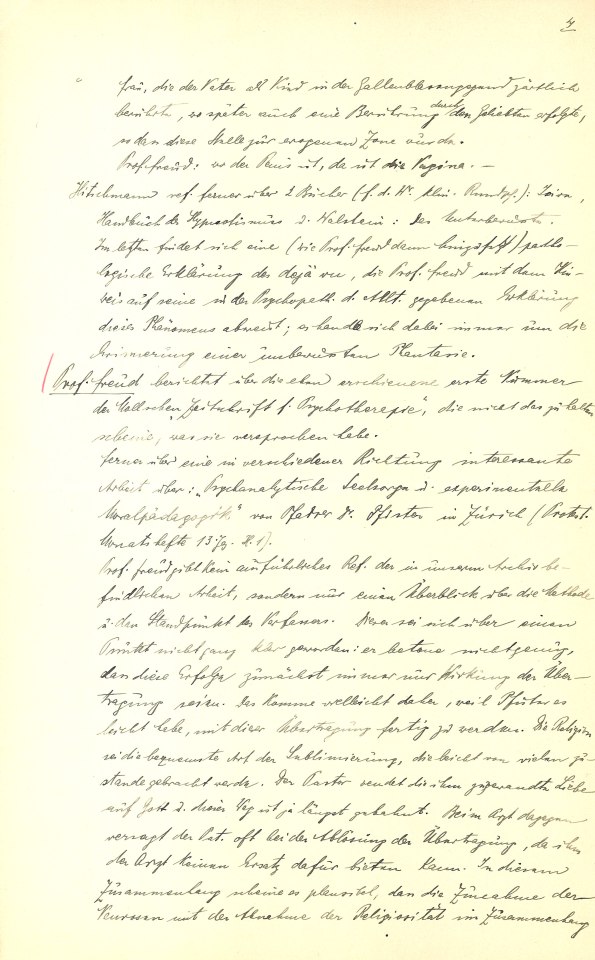 4
frau, die der Vater als Kind in der Gallenblasengegend zärtlich
berührte, wo später auch eine Berührung durch den Geliebten erfolgte,
so dass diese Stelle zur erogenen Zone wurde.
Prof. Freud: wo der Penis ist, da ist die Vagina. —
Hitschmann ref. ferner über 2 Bücher (f. d. Wr. klin. Rundsch.):
Handbuch des Hypnotismus u. Walstein: Das Unterbewusste.
Im letzten findet sich eine (wie Prof. Freud dann hinzufügt) patho-
logische Erklärung des dejà vu, die Prof. Freud mit dem Hin-
weis auf seine in der Psychopath. d. Alltl. gegebenen Erklärung
dieses Phänomens abweist; es handle sich dabei immer um die
Erinnerung einer unbewussten Phantasie.
Prof. Freud berichtet über die eben erschienene erste Nummer
der Moll'schen "Zeitschrift f. Psychotherapie", die nicht das zu halten
scheine, was sie versprochen habe.
Ferner über eine in verschiedener Richtung interessante
Arbeit über: "Psychanalytische Seelsorge u. experimentelle
Moralpädagogik" von Pfarrer Dr. Pfister in Zürich (Protest.
Monatshefte 13 Jg. H. 1).
Prof. Freud gibt kein ausführliches Ref. der in unserm Archiv be-
findlichen Arbeit, sondern nur einen Überblick über die Methode
u. den Standpunkt des Verfassers. Dieser sei sich über einen
Punkt nicht ganz klar geworden: er betone nicht genug,
dass diese Erfolge zunächst immer nur Wirkung der Über-
tragung seien. Das komme vielleicht daher, weil Pfister es
leicht habe, mit dieser Übertragung fertig zu werden. Die Religion
sei die bequemste Art der Sublimierung, die leicht von vielen zu-
stande gebracht werde. Der Pastor wendet die ihm zugewandte Liebe
auf Gott u. dieser Weg ist ja längst gebahnt. Beim Arzt dagegen
versagt der Pat. oft bei der Ablösung der Übertragung, da ihm
der Arzt keinen Ersatz dafür bieten kann. In diesem
Zusammenhang scheine es plausibel, dass die Zunahme der
Neurosen mit der Abnahme der Religiosität im Zusammenhang